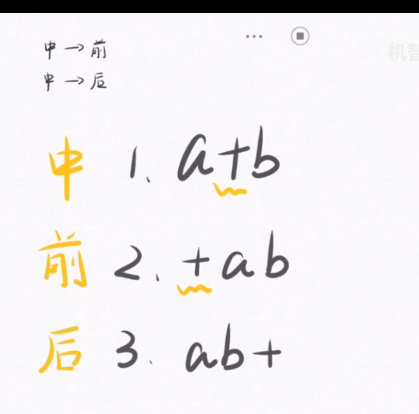 中→前
中→后
机智
中 1. a+b
前 2. +ab
后 3. ab+